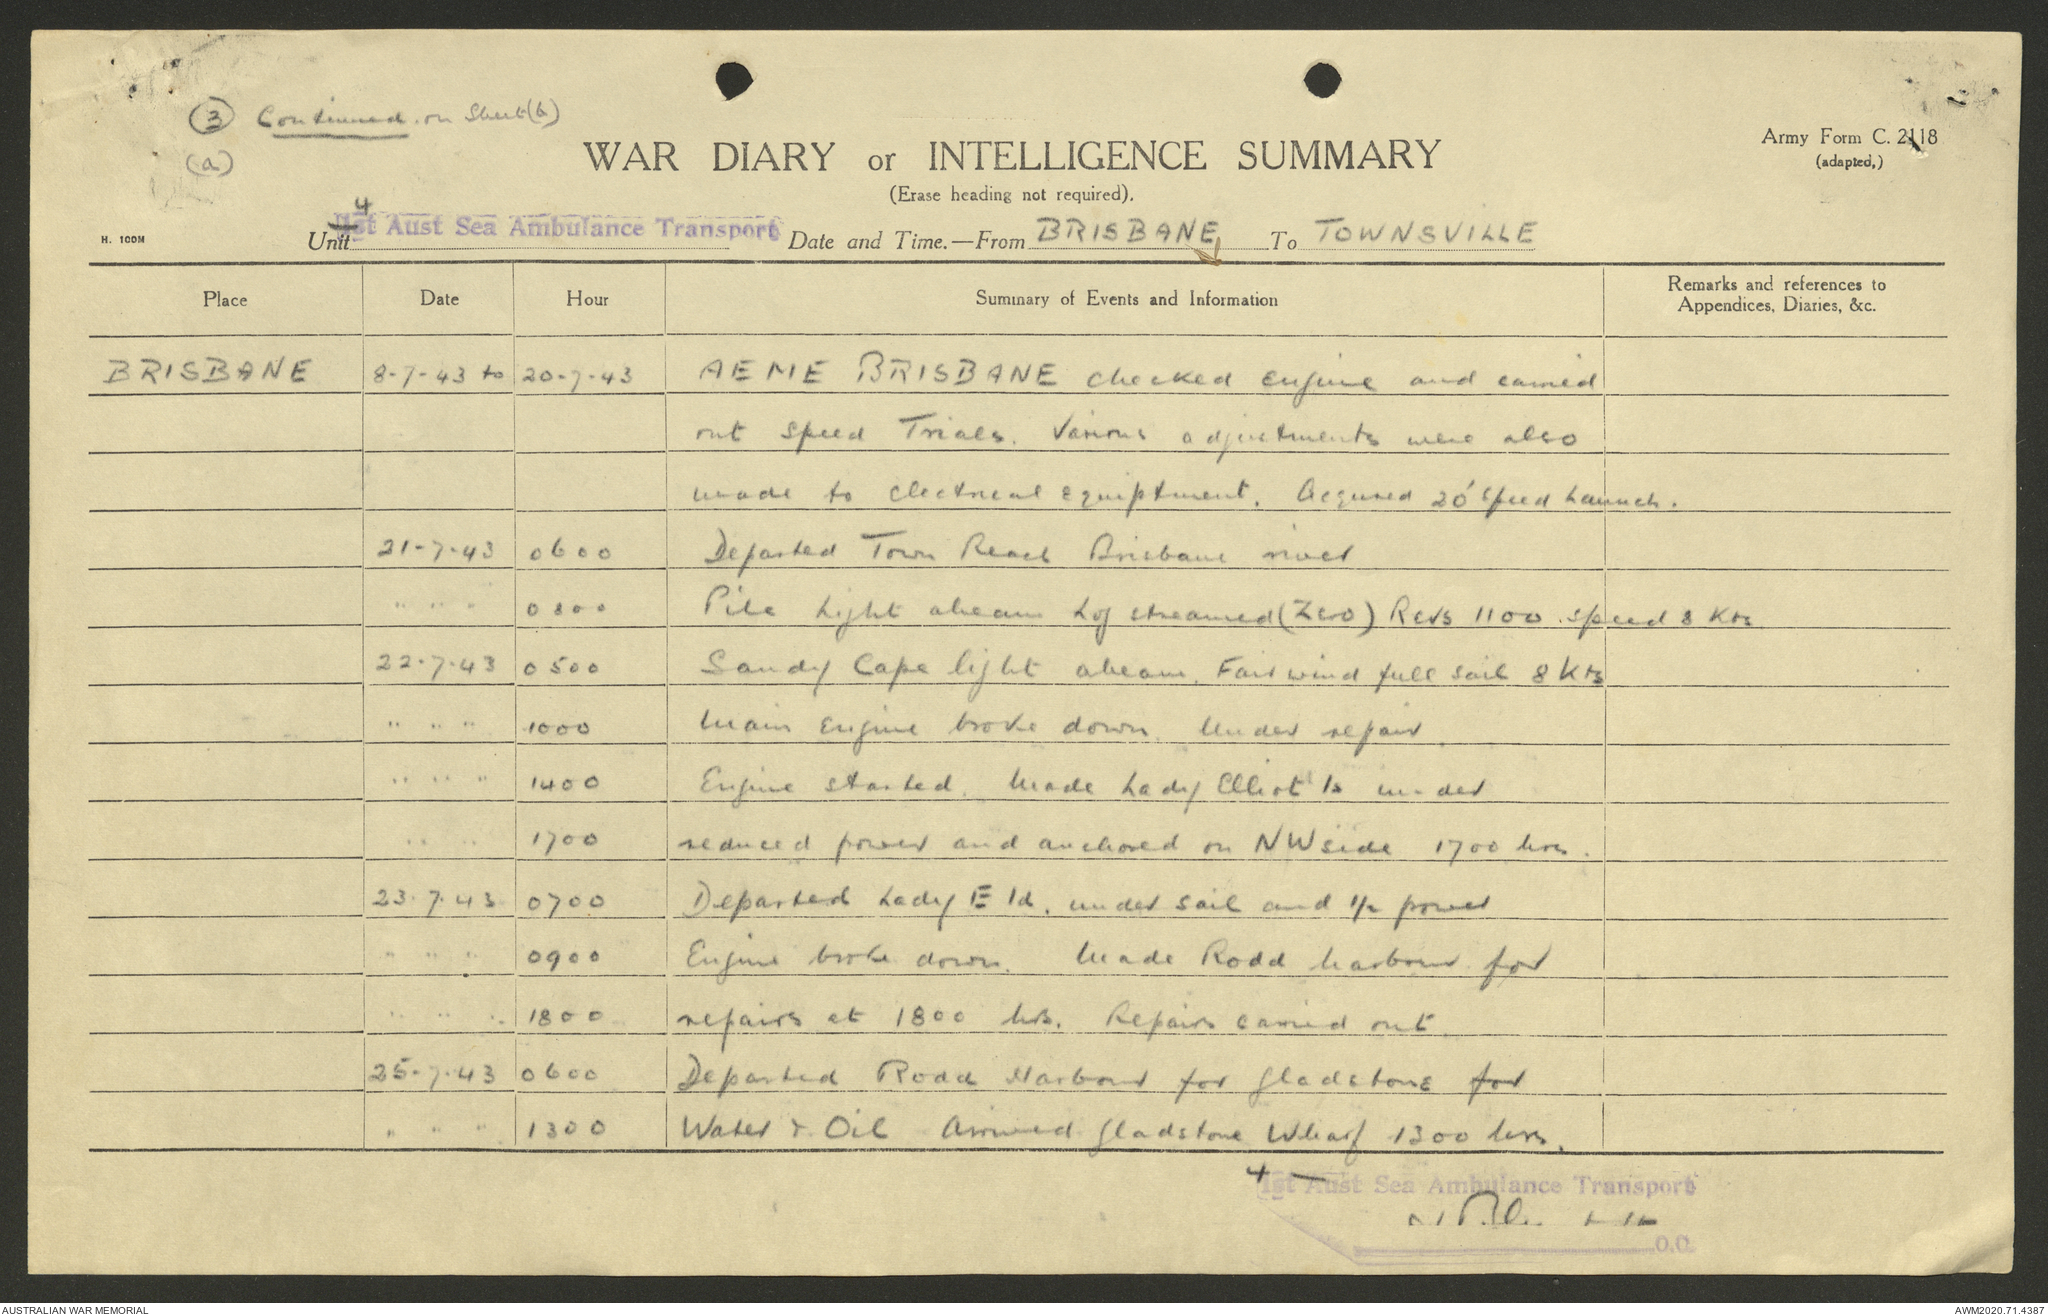 (3) Continued on Sheet (b)
(a)
WAR DIARY or INTELLIGENCE SUMMARY
Army Form C. 2118
(adapted.)
(Erase heading not required).
H. 100M
Unit 4 1st Aust Sea Ambulance Transport Date and Time.—From BRISBANE To TOWNSVILLE
Place Date Hour Summary of Events and Information Remarks and references to
Appendices, Diaries, &c.
BRISBANE 8-7-43 to 20-7-43 AEME BRISBANE checked engine and carried
out speed Trials. Various adjustments were also
made to electrical equiptment. Acquired 20' speed Launch.
21-7-43 0600 Departed Town Reach Brisbane river
" " " 0800 Pile Light abeam Log streamed (Zero) Revs 1100 speed 8 Kts
22-7-43 0500 Sandy Cape light abeam. Fair wind full sail 8 Kts
" " " 1000 Main Engine broke down. Under repair.
" " " 1400 Engine started. Made Lady Elliot Is under
" " 1700 reduced power and anchored on NW side 1700 hrs.
23-7-43 0700 Departed Lady E Id. under sail and 1/2 power
" " " 0900 Engine broke down. Made Rodd harbour for
" " " 1800 repairs at 1800 hrs. Repairs carried out.
25-7-43 0600 Departed Rodd Harbour for Gladstone for
" " " 1300 Water & Oil Arrived Gladstone Wharf 1300 hrs.
4 1st Aust Sea Ambulance Transport
O.C.
AUSTRALIAN WAR MEMORIAL AWM2020.71.4387